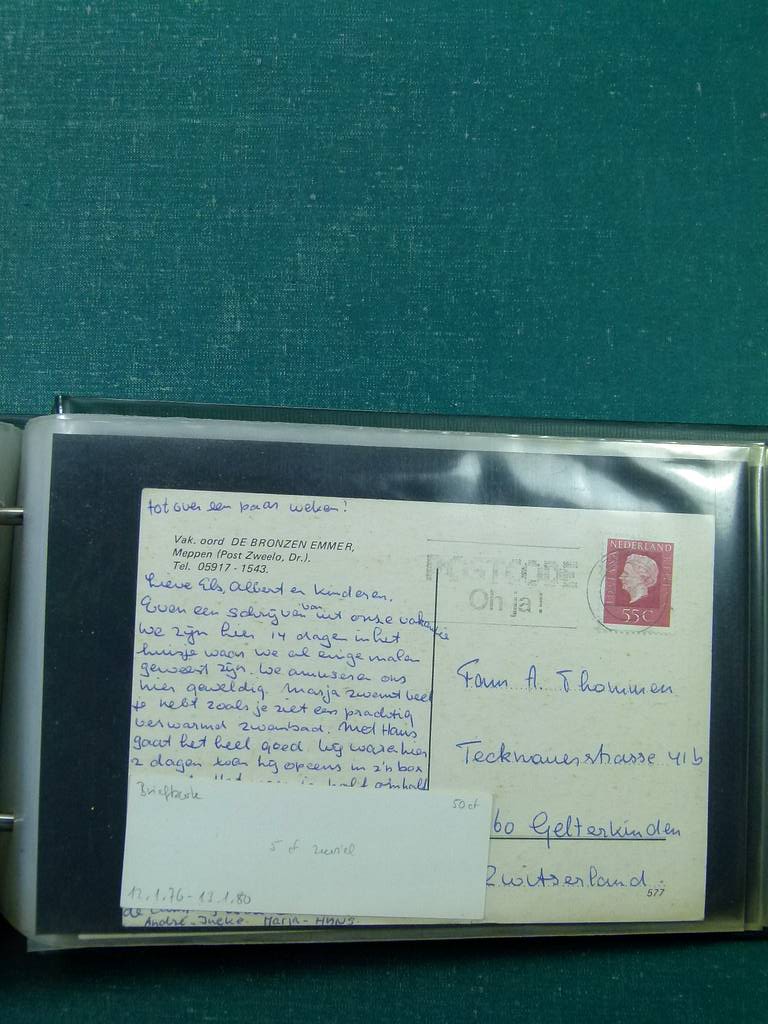 tot over een paar weken!
Vak. oord DE BRONZEN EMMER,
Meppen (Post Zweelo, Dr.).
Tel. 05917 - 1543.
Lieve Els, Albert en kinderen.
Even een schrijven van uit onze vakantie
We zijn hier 14 dagen in het
huisje waar we al enige malen
geweest zijn. We amuseren ons
hier geweldig. Marja zwemt veel
je hebt zoals je ziet een prachtig
verwarmd zwembad. Met Hans
gaat het heel goed. Wij waren hier
2 dagen toen hij opeens in z'n box
half omhalf
André - Ineke - Marja - Hans.
POSTCODE
Oh ja!
NEDERLAND
55c
Fam A. Thommen
Tecknauerstrasse 41b
60 Gelterkinden
Zwitserland.
577
Briefkarte
50 ct
5 ct zuviel
12.1.76 - 13.1.80